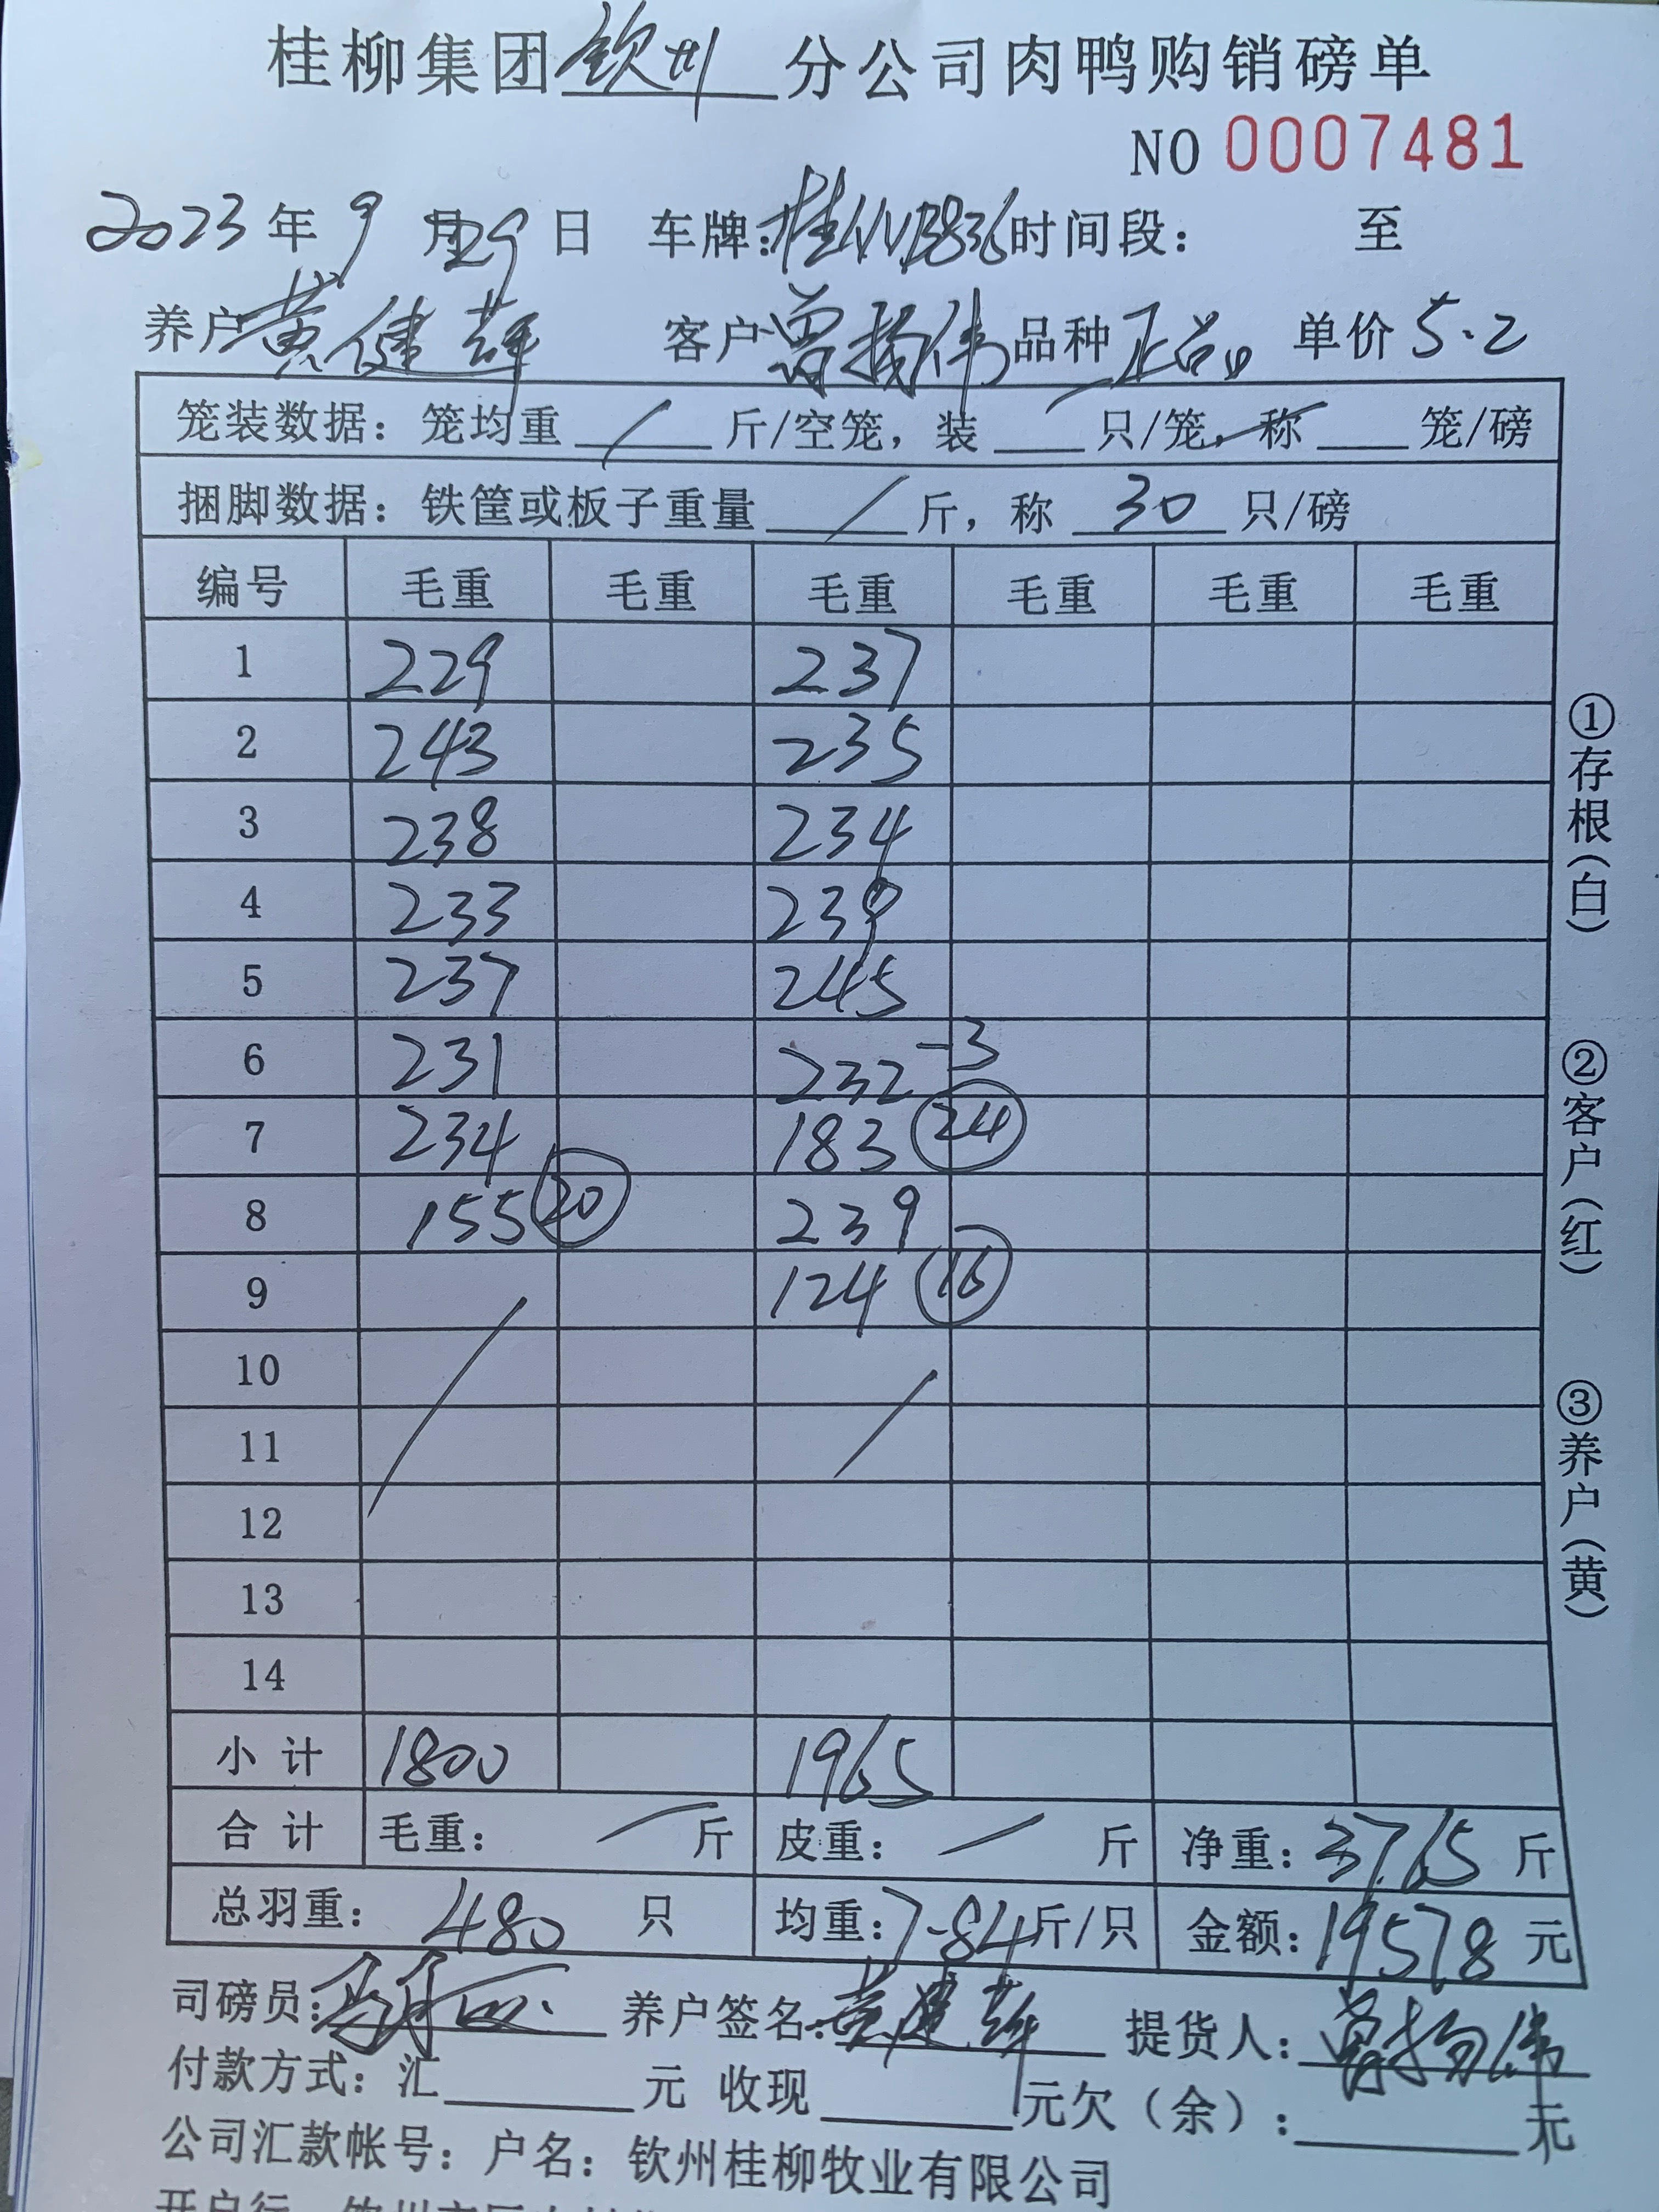 桂柳集团钦州分公司肉鸭购销磅单
NO 0007481
2023年9月29日 车牌: 时间段: 至
养户黄健辉 客户曾扬伟 品种正品 单价5.2
笼装数据：笼均重 / 斤/空笼，装___只/笼，称___笼/磅
捆脚数据：铁筐或板子重量 / 斤，称 30 只/磅
编号 毛重 毛重 毛重 毛重 毛重 毛重
1 229 237
2 243 235
3 238 234
4 233 239
5 237 245
6 231 232 -3
7 234 183 24
8 155 20 239
9 124 16
10
11
12
13
14
小计 1800 1965
合计 毛重： / 斤 皮重： / 斤 净重：3765斤
总羽重：480 只 均重：7.84斤/只 金额：19578元
司磅员： 养户签名：黄健辉 提货人：曾扬伟
付款方式：汇______元 收现______元欠（余）：______元
公司汇款帐号：户名：钦州桂柳牧业有限公司
①存根（白）
②客户（红）
③养户（黄）